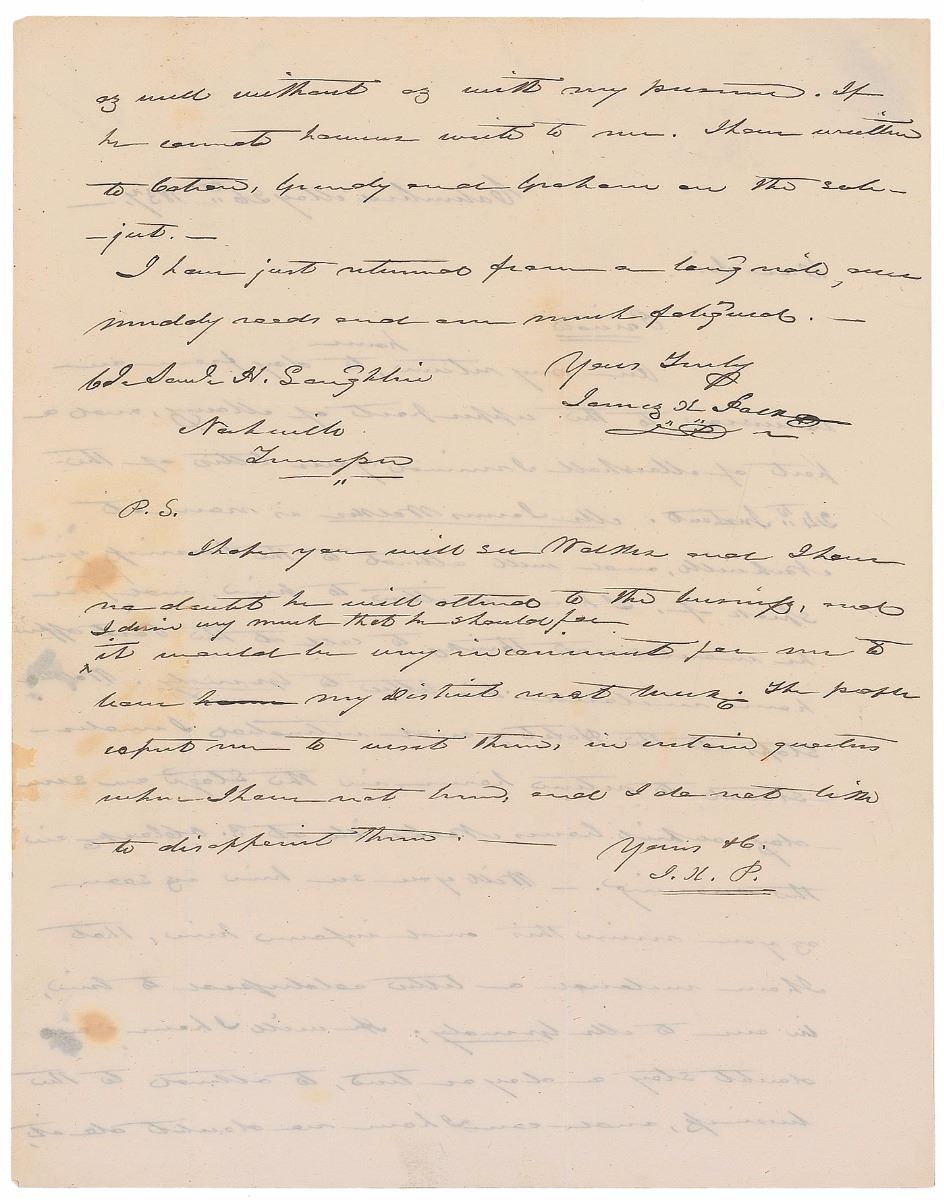 as well without as with my presence. If
he cannot however write to me. I have written
to Catron, Grundy and Graham on the sub-
-ject. —
I have just returned from a long ride, over
muddy roads and am much fatigued. —
Yours Truly
James K Polk
Col. Saml. H. Laughlin
Nashville
Tennessee
P. S.
I hope you will see Walker and I have
no doubt he will attend to the business, and
I desire very much that he should for
^ it would be very inconvenient for me to
leave my District next week. The people
expect me to visit them, in certain quarters
where I have not been, and I do not like
to disappoint them. —
Yours &C.
J. K. P.